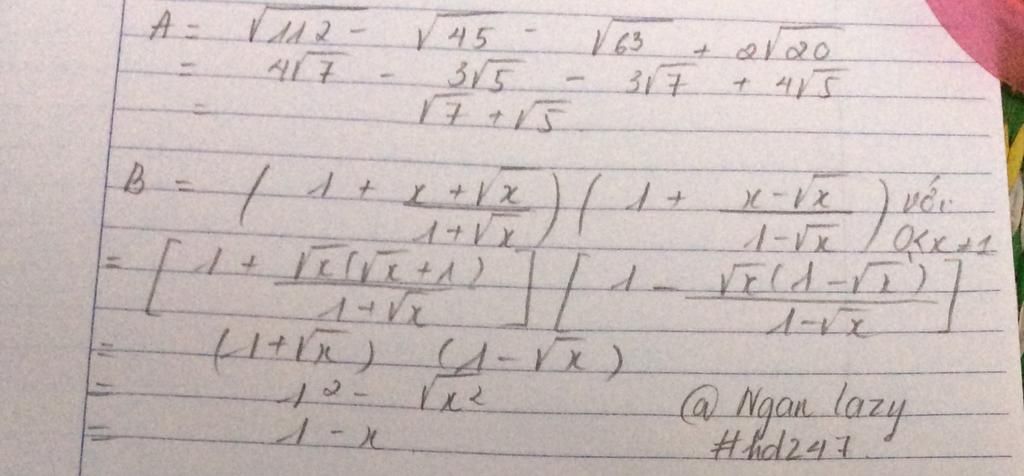 A = √112 - √45 - √63 + 2√20
= 4√7 - 3√5 - 3√7 + 4√5
= √7 + √5
B = ( 1 + (x + √x)/(1 + √x) ) ( 1 + (x - √x)/(1 - √x) ) với 0 ≤ x ≠ 1
= [ 1 + √x(√x + 1)/(1 + √x) ] [ 1 - √x(1 - √x)/(1 - √x) ]
= (1 + √x) (1 - √x)
= 1² - √x²
= 1 - x
@ Ngan lazy
#hd247